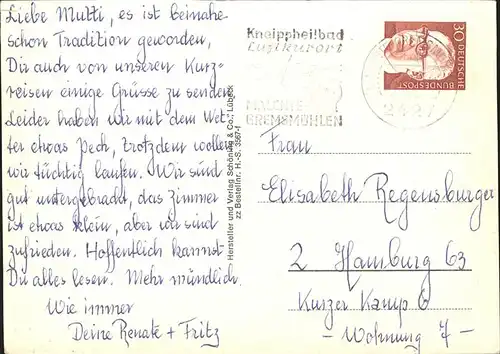 Liebe Mutti, es ist beinahe
schon Tradition geworden,
Dir auch von unseren Kurz-
reisen einige Grüsse zu senden.
Leider haben wir mit dem Wet-
ter etwas Pech, trotzdem wollen
wir tüchtig laufen. Wir sind
gut untergebracht, das Zimmer
ist etwas klein, aber wir sind
zufrieden. Hoffentlich kannst
Du alles lesen. Mehr mündlich.
Wie immer
Deine Renate + Fritz
Hersteller und Verlag Schöning & Co., Lübeck
Bestellnr. H.-S. 3967
Kneippheilbad
Luftkurort
MALENTE
GREMSMÜHLEN
2427
30 DEUTSCHE
BUNDESPOST
Frau
Elisabeth Regensburger
2 Hamburg 63
Kurzer Kamp 6
- Wohnung 7 -